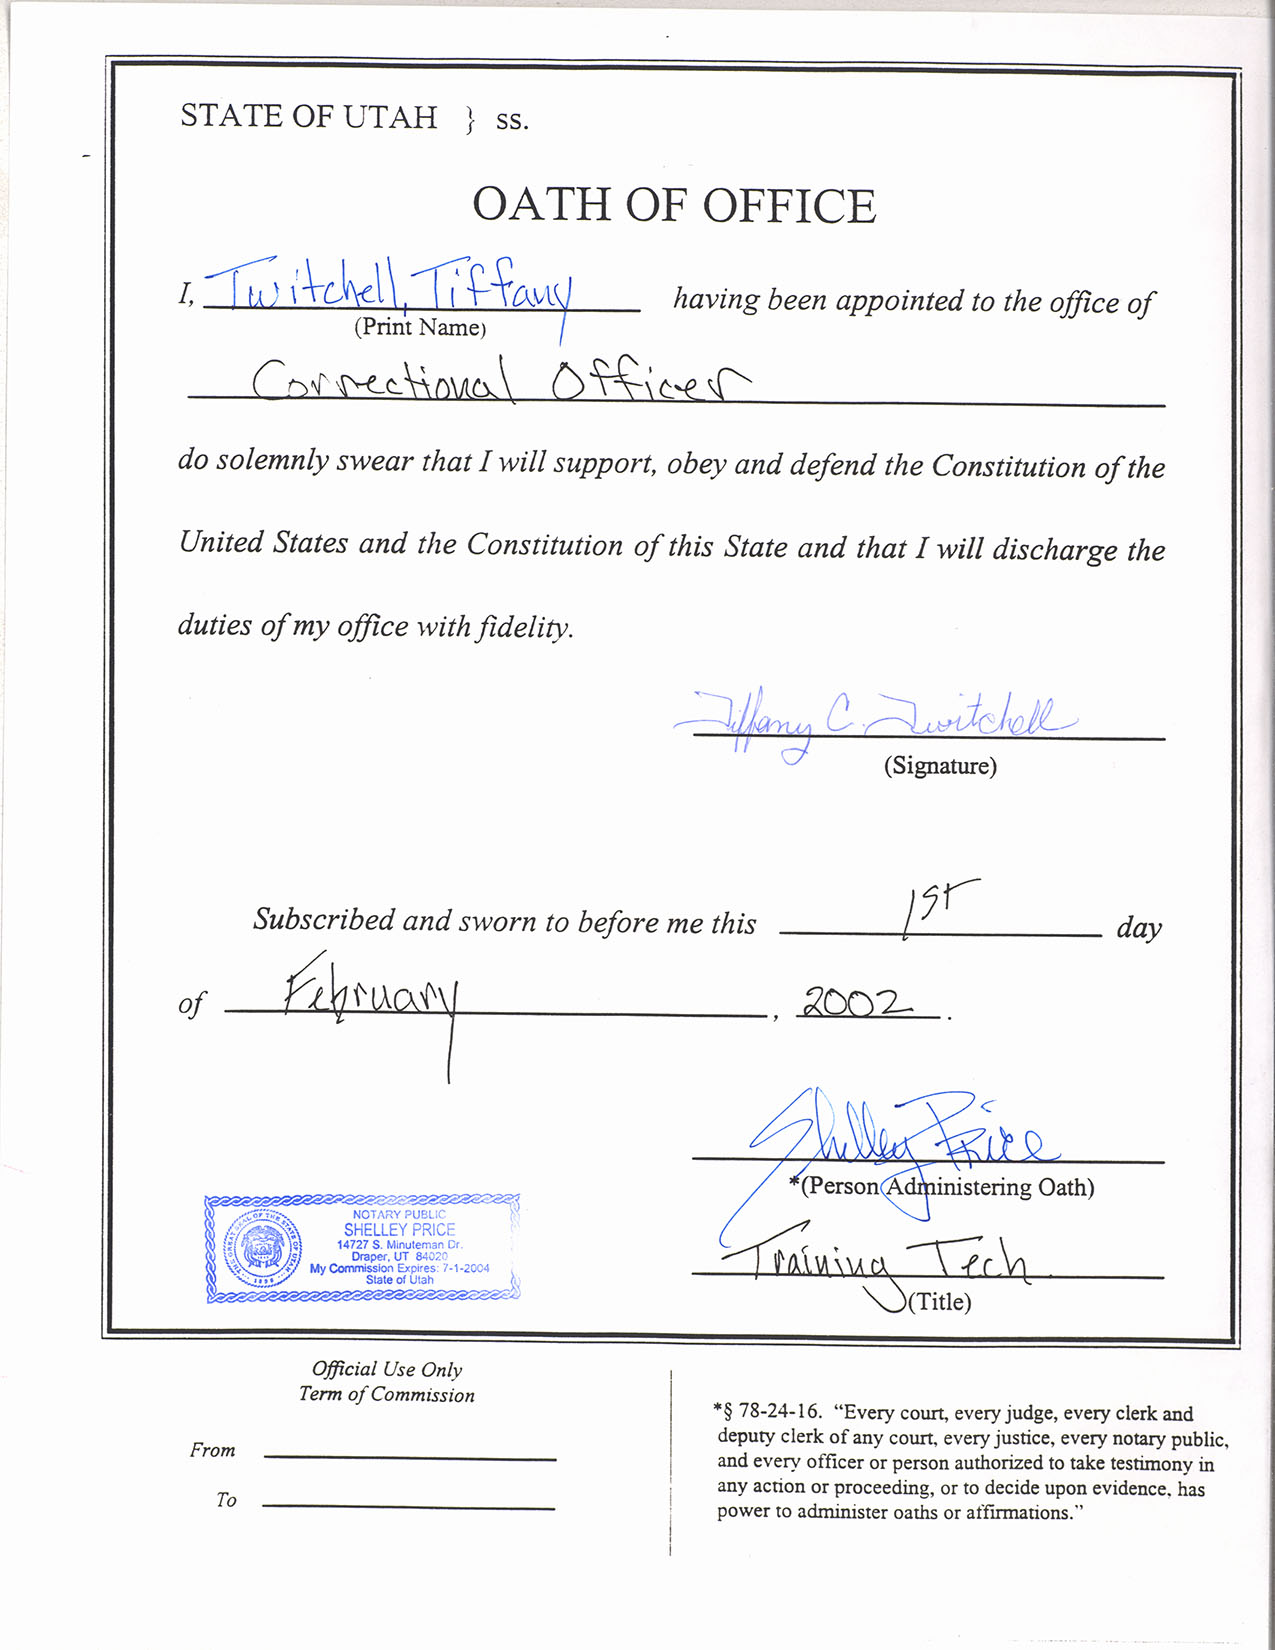 STATE OF UTAH } ss.
OATH OF OFFICE
I, Twitchell, Tiffany having been appointed to the office of
(Print Name)
Correctional Officer
do solemnly swear that I will support, obey and defend the Constitution of the
United States and the Constitution of this State and that I will discharge the
duties of my office with fidelity.
Tiffany C. Twitchell
(Signature)
Subscribed and sworn to before me this 1st day
of February, 2002.
Shelley Price
*(Person Administering Oath)
Training Tech
(Title)
THE GREAT SEAL OF THE STATE OF UTAH
1896
NOTARY PUBLIC
SHELLEY PRICE
14727 S. Minuteman Dr.
Draper, UT 84020
My Commission Expires: 7-1-2004
State of Utah
Official Use Only
Term of Commission
From
To
*§ 78-24-16. “Every court, every judge, every clerk and
deputy clerk of any court, every justice, every notary public,
and every officer or person authorized to take testimony in
any action or proceeding, or to decide upon evidence, has
power to administer oaths or affirmations.”